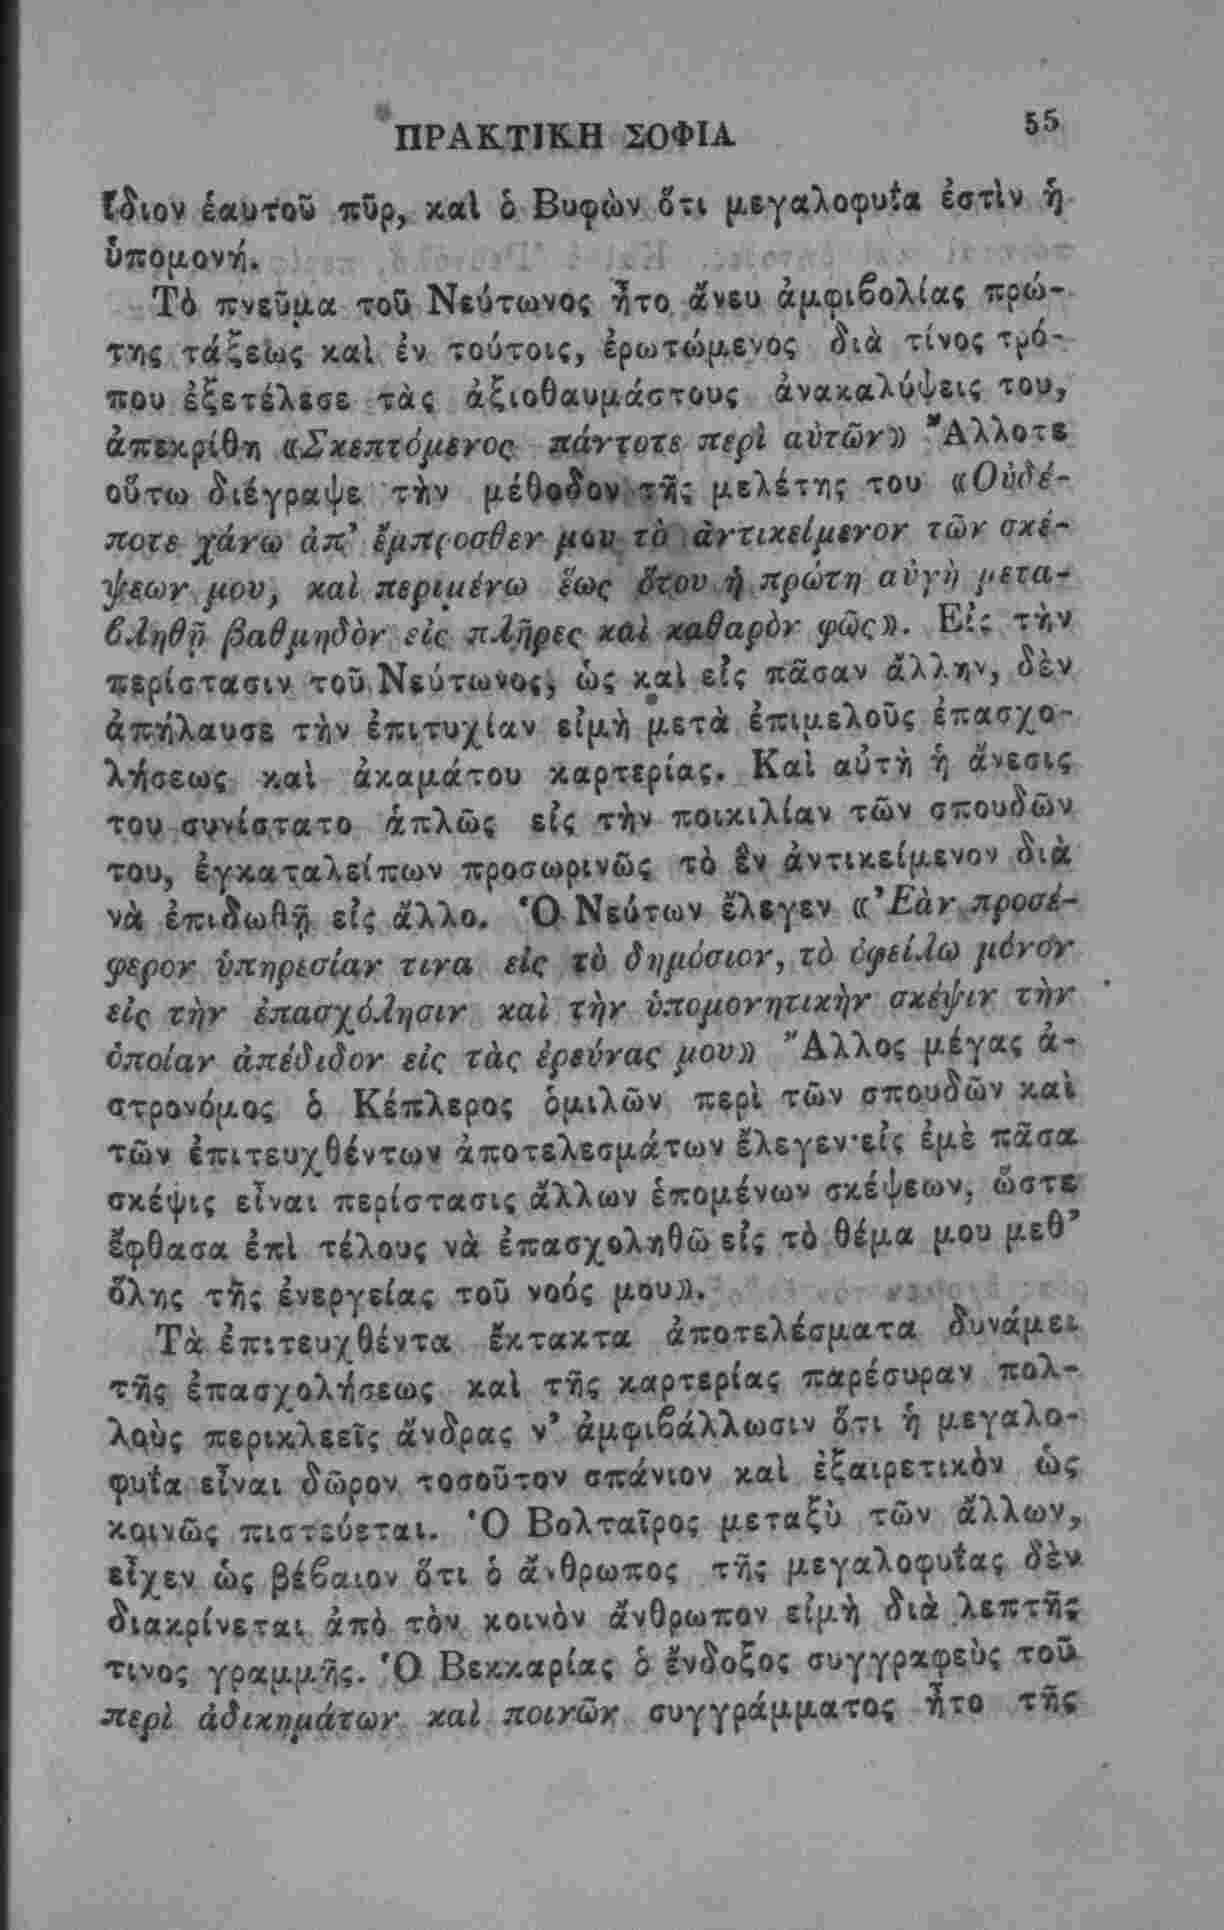 ΠΡΑΚΤΙΚΗ ΣΟΦΙΑ 55
ἴδιον ἑαυτοῦ πῦρ, καὶ ὁ Βυφὼν ὅτι μεγαλοφυΐα ἐστὶν ἡ
ὑπομονή.
Τὸ πνεῦμα τοῦ Νεύτωνος ἦτο ἄνευ ἀμφιβολίας πρώ-
της τάξεως καὶ ἐν τούτοις, ἐρωτώμενος διὰ τίνος τρό-
που ἐξετέλεσε τὰς ἀξιοθαυμάστους ἀνακαλύψεις του,
ἀπεκρίθη «Σκεπτόμενος πάντοτε περὶ αὐτῶν» Ἄλλοτε
οὕτω διέγραψε τὴν μέθοδον τῆς μελέτης του «Οὐδέ-
ποτε χάνω ἀπ’ ἔμπροσθεν μου τὸ ἀντικείμενον τῶν σκέ-
ψεων μου, καὶ περιμένω ἕως ὅτου ἡ πρώτη αὐγὴ μετα-
βληθῇ βαθμηδὸν εἰς πλῆρες καὶ καθαρὸν φῶς». Εἰς τὴν
περίστασιν τοῦ Νεύτωνος, ὡς καὶ εἰς πᾶσαν ἄλλην, δὲν
ἀπήλαυσε τὴν ἐπιτυχίαν εἰμὴ μετὰ ἐπιμελοῦς ἐπασχο-
λήσεως καὶ ἀκαμάτου καρτερίας. Καὶ αὐτὴ ἡ ἄνεσις
του συνίστατο ἁπλῶς εἰς τὴν ποικιλίαν τῶν σπουδῶν
του, ἐγκαταλείπων προσωρινῶς τὸ ἓν ἀντικείμενον διὰ
νὰ ἐπιδωθῇ εἰς ἄλλο. Ὁ Νεύτων ἔλεγεν «Ἐὰν προσέ-
φερον ὑπηρεσίαν τινα εἰς τὸ δημόσιον, τὸ ὀφείλω μόνον
εἰς τὴν ἐπασχόλησιν καὶ τὴν ὑπομονητικὴν σκέψιν τὴν
ὁποίαν ἀπέδιδον εἰς τὰς ἐρεύνας μου» Ἄλλος μέγας ἀ-
στρονόμος ὁ Κέπλερος ὁμιλῶν περὶ τῶν σπουδῶν καὶ
τῶν ἐπιτευχθέντων ἀποτελεσμάτων ἔλεγεν·εἰς ἐμὲ πᾶσα
σκέψις εἶναι περίστασις ἄλλων ἑπομένων σκέψεων, ὥστε
ἔφθασα ἐπὶ τέλους νὰ ἐπασχοληθῶ εἰς τὸ θέμα μου μεθ’
ὅλης τῆς ἐνεργείας τοῦ νοός μου».
Τὰ ἐπιτευχθέντα ἔκτακτα ἀποτελέσματα δυνάμει
τῆς ἐπασχολήσεως καὶ τῆς καρτερίας παρέσυραν πολ-
λοὺς περικλεεῖς ἄνδρας ν’ ἀμφιβάλλωσιν ὅτι ἡ μεγαλο-
φυΐα εἶναι δῶρον τοσοῦτον σπάνιον καὶ ἐξαιρετικὸν ὡς
κοινῶς πιστεύεται. Ὁ Βολταῖρος μεταξὺ τῶν ἄλλων,
εἶχεν ὡς βέβαιον ὅτι ὁ ἄνθρωπος τῆς μεγαλοφυΐας δὲν
διακρίνεται ἀπὸ τὸν κοινὸν ἄνθρωπον εἰμὴ διὰ λεπτῆς
τινος γραμμῆς. Ὁ Βεκκαρίας ὁ ἔνδοξος συγγραφεὺς τοῦ
περὶ ἀδικημάτων καὶ ποινῶν συγγράμματος ἦτο τῆς